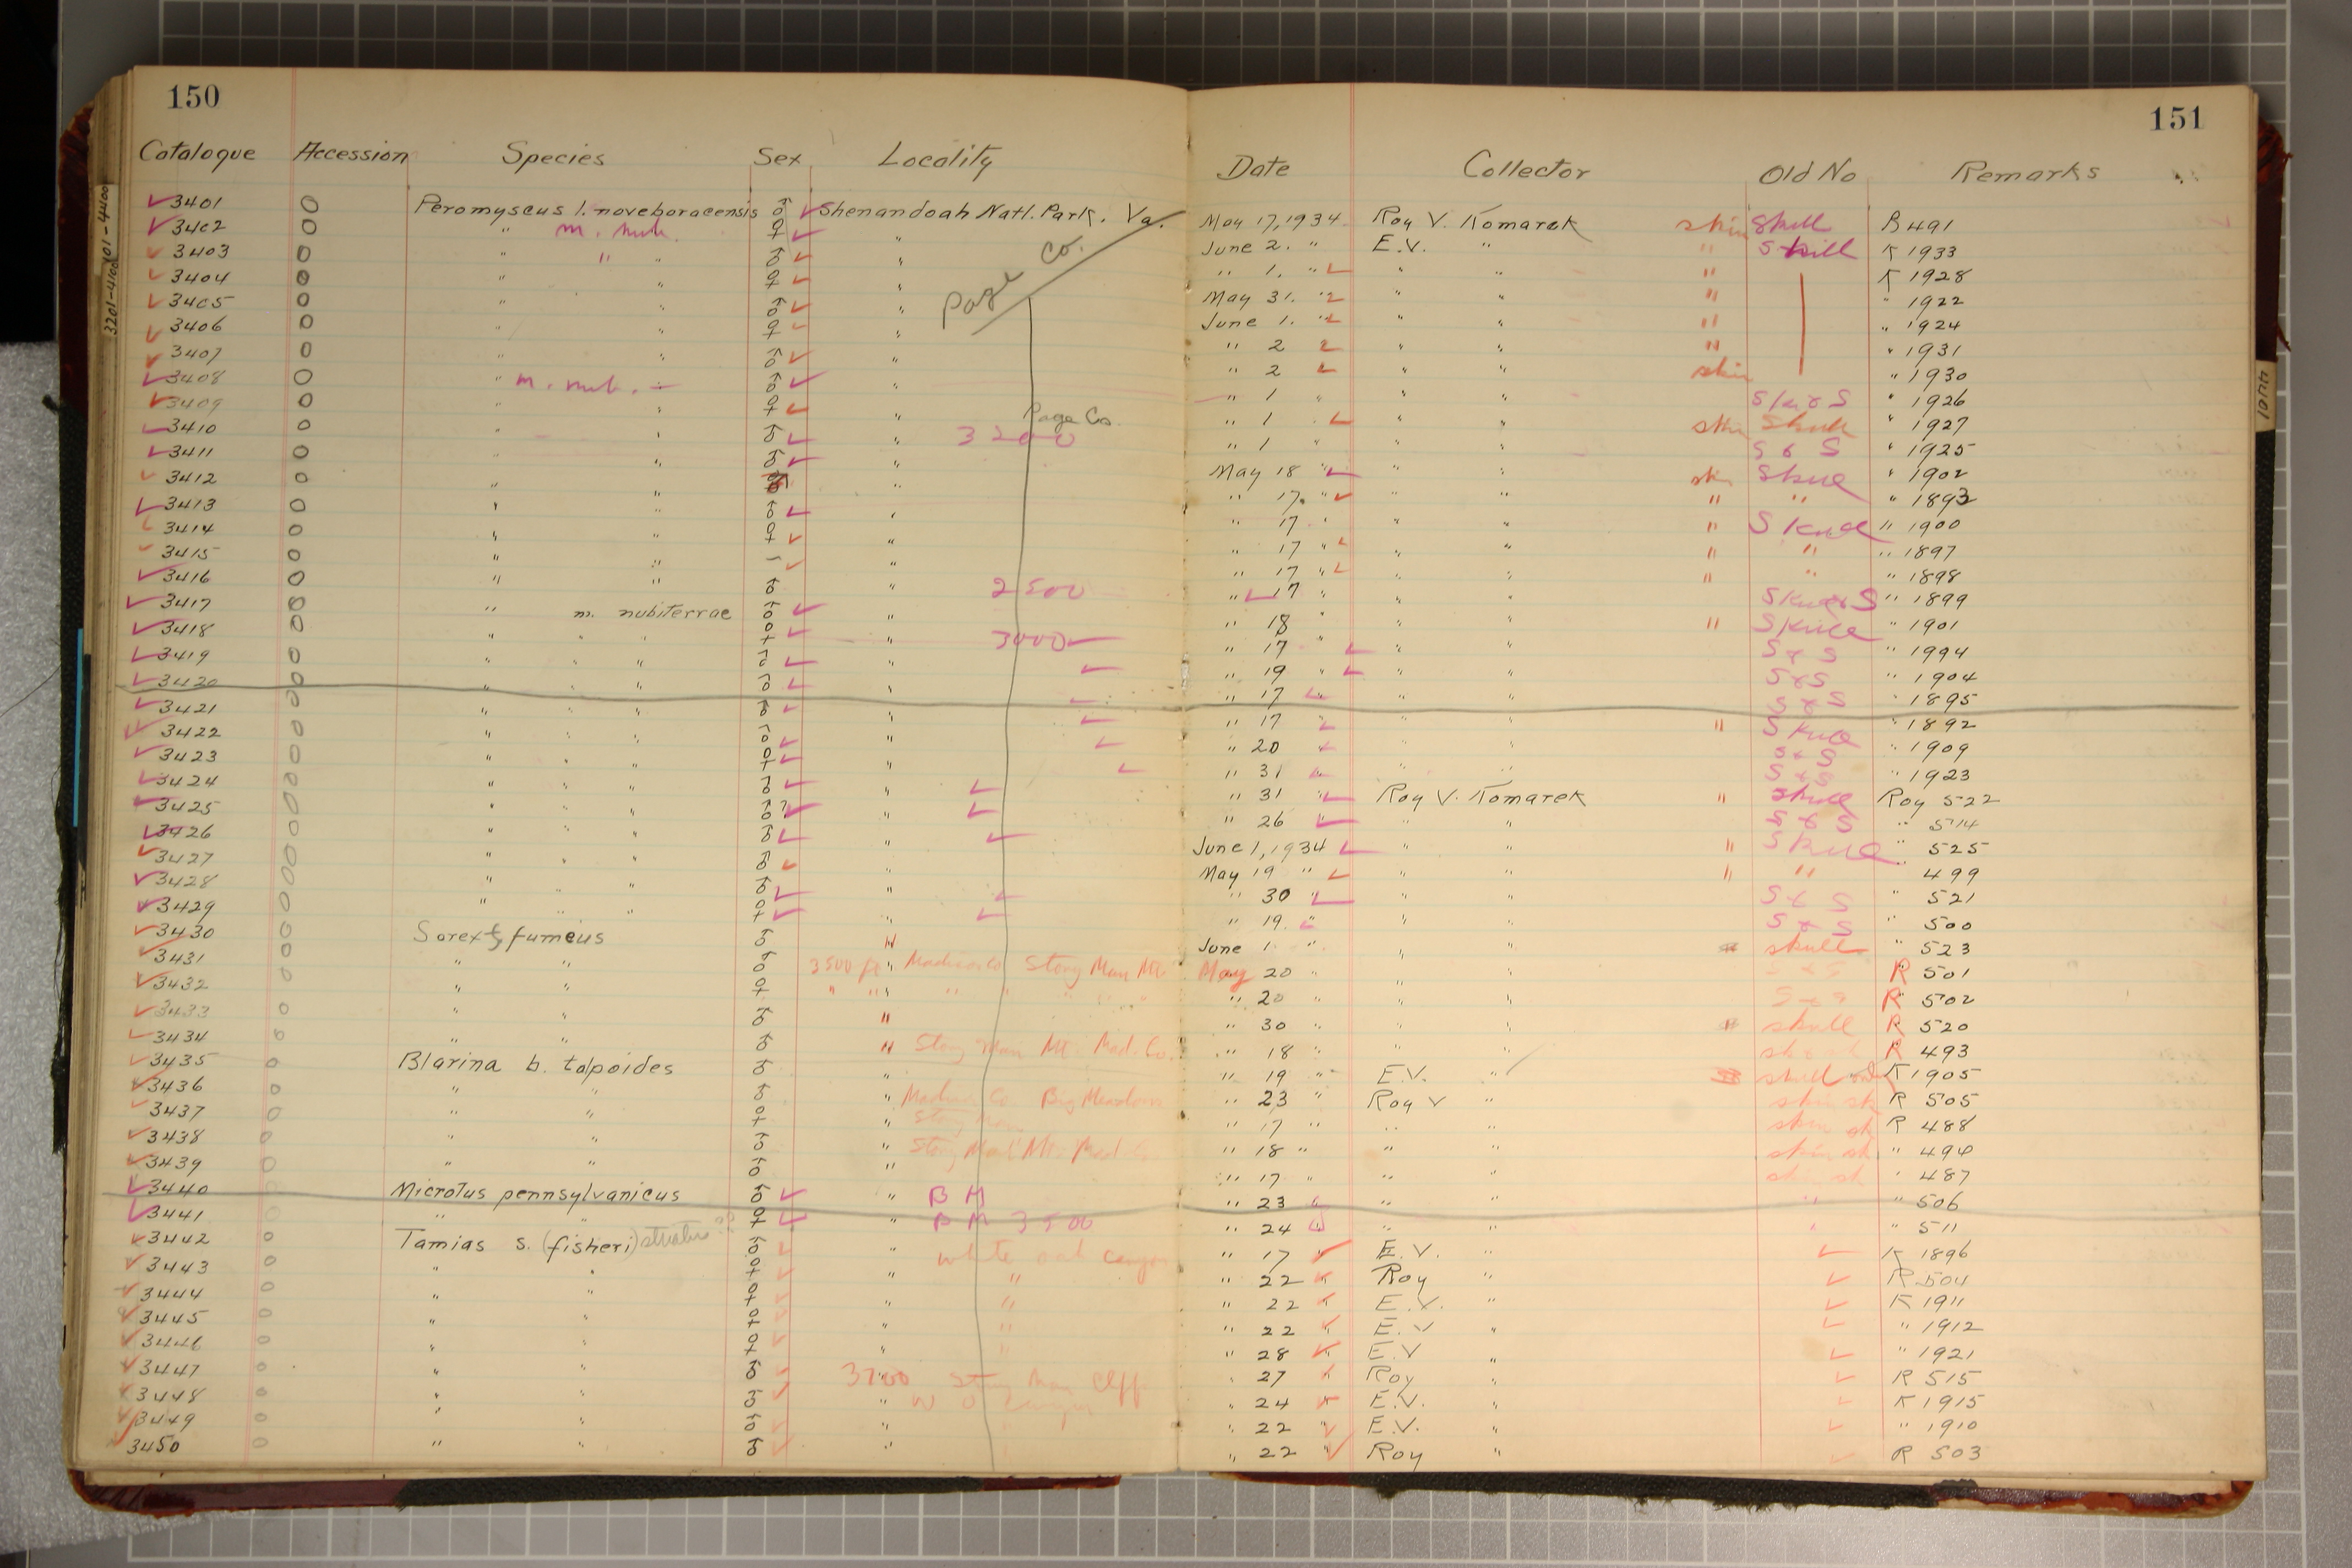 150
151
Catalogue Accession Species Sex Locality Date Collector Old No Remarks
3201-4100 01-4400
4401
3401 0 Peromyscus l. noveboracensis ♂ Shenandoah Natl. Park. Va. May 17, 1934 Roy V. Komarek skin Skull B 491
3402 0 " m. nub. ♀ " June 2. " E.V. " " Skull K 1933
3403 0 " " " ♂ " " 1. " " " " K 1928
3404 0 " " ♀ " May 31. " " " " " 1922
Page Co.
3405 0 " " ♂ " June 1. " " " " " 1924
3406 0 " " ♀ " " 2 " " " " 1931
3407 0 " " ♂ " " 2 " " skin " 1930
3408 0 " m. nub. ♂ " " 1 " " " S " 1926
3409 0 " " ♀ " Page Co. " 1 " " skin Skull " 1927
3410 0 " ♂ " 3200 " 1 " " " S & S " 1925
3411 0 " ♂ " May 18 " " " Skull " 1902
3412 0 " " " " 17. " " " " " " 1893
3413 0 " " ♂ " " 17 " " " " Skull " 1900
3414 0 " " ♀ " " 17 " " " " " " 1897
3415 0 " " – " " 17 " " " " " " 1898
3416 0 " " ♂ 2500 " 17 " " " S " 1899
3417 0 " m. nubiterrae ♂ " " 18 " " " " Skull " 1901
3418 0 " " " ♀ " 3000 " 17 " " " S & S " 1994
3419 0 " " " ♂ " " 19 " " " S & S " 1904
3420 0 " " " ♂ " " 17 " " " S & S " 1895
3421 0 " " " ♂ " " 17 " " " " Skull " 1892
3422 0 " " " ♂ " " 20 " " " S & S " 1909
3423 0 " " " ♀ " " 31 " " " S & S " 1923
3424 0 " " " ♂ " " 31 " Roy V. Komarek " skull Roy 522
3425 0 " " " ♂? " " 26 " " " S & S " 514
3426 0 " " " ♂ " June 1, 1934 " " " Skull " 525
3427 0 " " " ♂ " May 19 " " " " " 499
3428 0 " " " ♂ " " 30 " " " S & S " 521
3429 0 " " " ♀ " " 19. " " " S & S " 500
3430 0 Sorex f. fumeus ♂ " June 1. " " " skull " 523
3431 0 " " ♂ 3500 ft " Madison Co Stony Man Mt. May 20 " " " S & S R 501
3432 0 " " ♀ " " " " " 20 " " " S & S R 502
3433 0 " " ♂ " " 30 " " " skull R 520
3434 0 " " ♂ " Stony Man Mt. Mad. Co. " 18 " " " R 493
3435 0 Blarina b. talpoides ♂ " " 19 " E.V. " skull K 1905
3436 0 " " ♂ " Madison Co Big Meadows " 23 " Roy V " skin sk R 505
3437 0 " " ♀ Stony Man " 17 " " " skin sk R 488
3438 0 " " ♂ " Stony Man Mt. Mad. Co " 18 " " " skin sk " 494
3439 0 " " ♂ " " 17 " " " sk sk " 487
3440 0 Microtus pennsylvanicus ♂ " B M " 23 " " " " " 506
3441 0 " " ♀ " B M 3500 " 24 " " " " " 511
3442 0 Tamias s. (fisheri) striatus ?? ♂ " white oak canyon " 17 " E.V. " K 1896
3443 0 " " ♀ " " " 22 " Roy " R 504
3444 0 " " ♀ " " " 22 " E.V. " K 1911
3445 0 " " ♀ " " " 22 " E.V " " 1912
3446 0 " " ♀ " " " 28 " E.V " " 1921
3447 0 " " ♂ 3700 " Stony Man Cliff " 27 " Roy " R 515
3448 0 " " ♂ " W O Canyon " 24 " E.V. " K 1915
3449 0 " " ♂ " " " 22 " E.V. " " 1910
3450 0 " " ♂ " " 22 " Roy " R 503